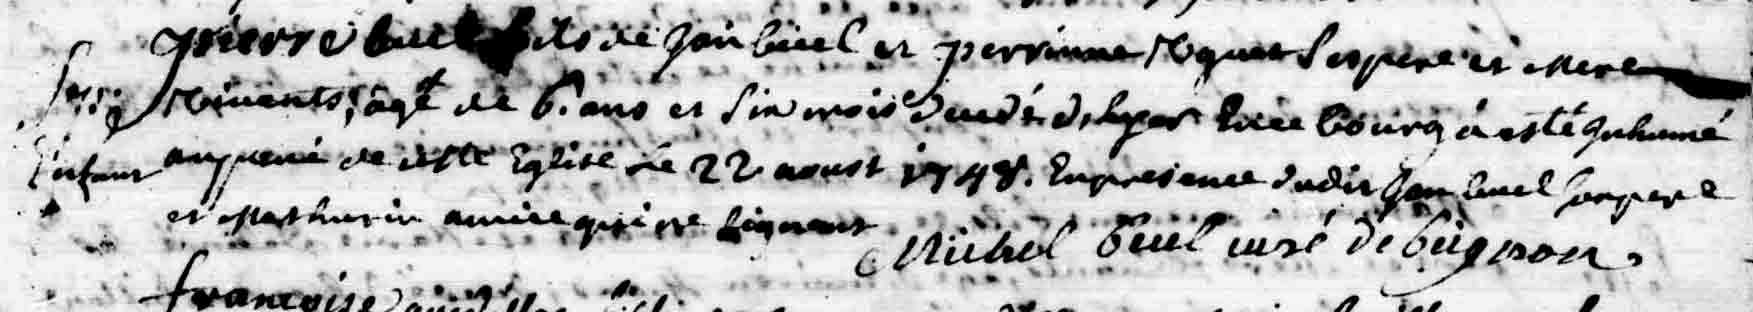 pierre buel fils de Jan buel et perrinne Noquet ses pere et Mere
vivants, agé de 6. ans et six mois decedé d'hyer en ce bourg à esté Inhumé
Enfant au pené de cette Eglise Le 22 aoust 1748. En presence dudit Jan buel son pere
et Mathurin amice qui ne signent
Michel buel curé de bugnon
francoise